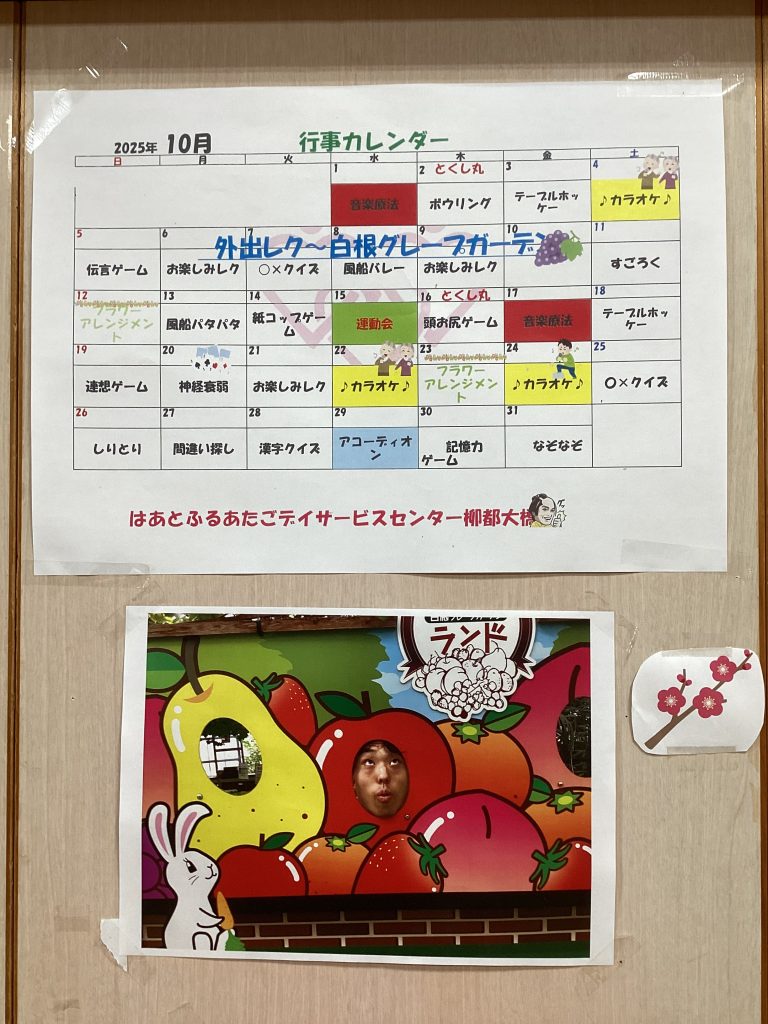 2025年 10月 行事カレンダー
日 月 火 水 木 金 土
1 2 とくし丸 3 4
音楽療法 ボウリング テーブルホッケー ♪カラオケ♪
5 6 7 8 9 10 11
外出レク～白根グレープガーデン
伝言ゲーム お楽しみレク ○×クイズ 風船バレー お楽しみレク すごろく
12 13 14 15 16 とくし丸 17 18
フラワーアレンジメント 風船パタパタ 紙コップゲーム 運動会 頭お尻ゲーム 音楽療法 テーブルホッケー
19 20 21 22 23 24 25
連想ゲーム 神経衰弱 お楽しみレク ♪カラオケ♪ フラワーアレンジメント ♪カラオケ♪ ○×クイズ
26 27 28 29 30 31
しりとり 間違い探し 漢字クイズ アコーディオン 記憶力ゲーム なぞなぞ
はあとふるあたごデイサービスセンター柳都大橋
ランド